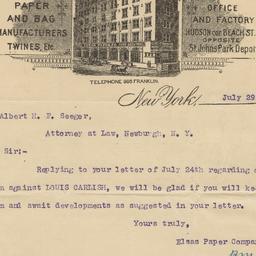 PAPER
AND BAG
MANUFACTURERS
TWINES, Etc.
OFFICE
AND FACTORY
HUDSON COR. BEACH ST.
OPPOSITE
St. Johns Park Depot
TELEPHONE 995 FRANKLIN.
New York,
July 29
Albert H. F. Seeger,
Attorney at Law, Newburgh, N. Y.
Sir:-
Replying to your letter of July 24th regarding
against LOUIS CARLISH, we will be glad if you will
and await developments as suggested in your letter.
Yours truly,
Elsas Paper